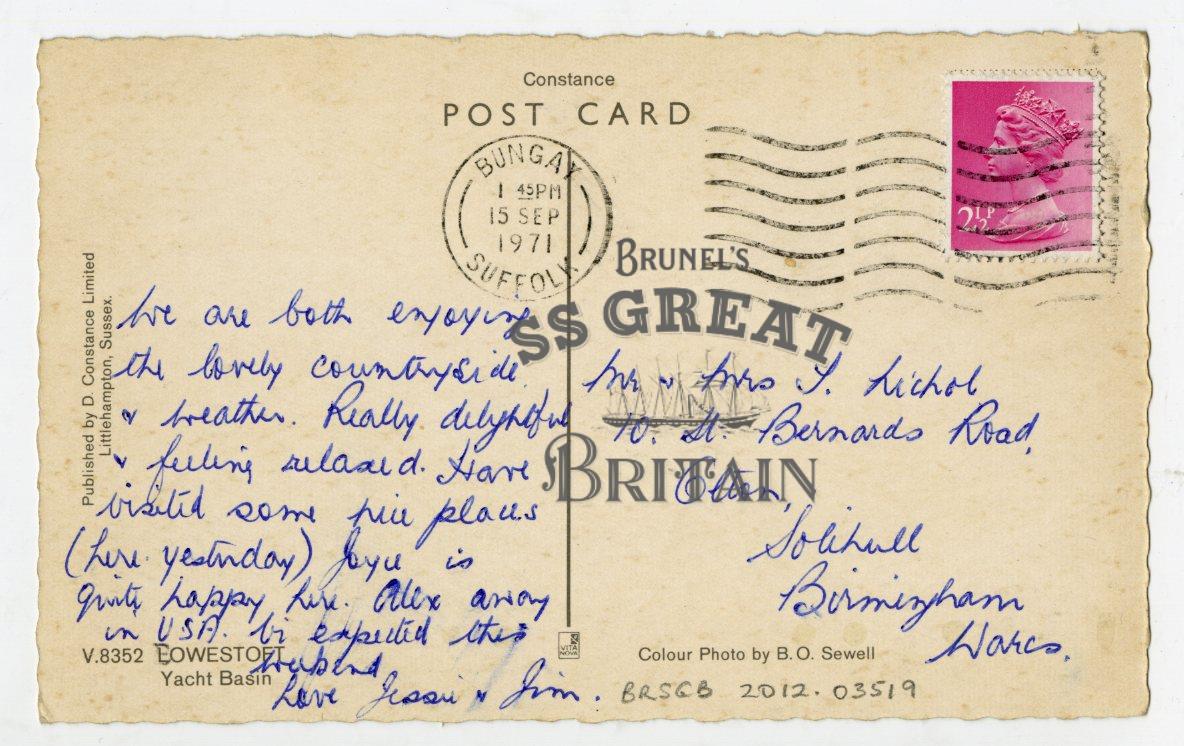 Constance
POST CARD
BUNGAY
1 45PM
15 SEP
1971
SUFFOLK
2½P
BRUNEL'S
SS GREAT
BRITAIN
Published by D. Constance Limited
Littlehampton, Sussex.
We are both enjoying
the lovely countryside
& weather. Really delightful
& feeling relaxed. Have
visited some nice places
(here yesterday) Joyce is
quite happy here. Alex away
in USA. expected this
weekend
Love Jessie & Jim.
Mr & Mrs Nichol
10. St. Bernards Road,
Olton,
Solihull
Birmingham
Warcs.
V.8352 LOWESTOFT
Yacht Basin
VITA
NOVA
Colour Photo by B.O. Sewell
BRSGB 2012.03519